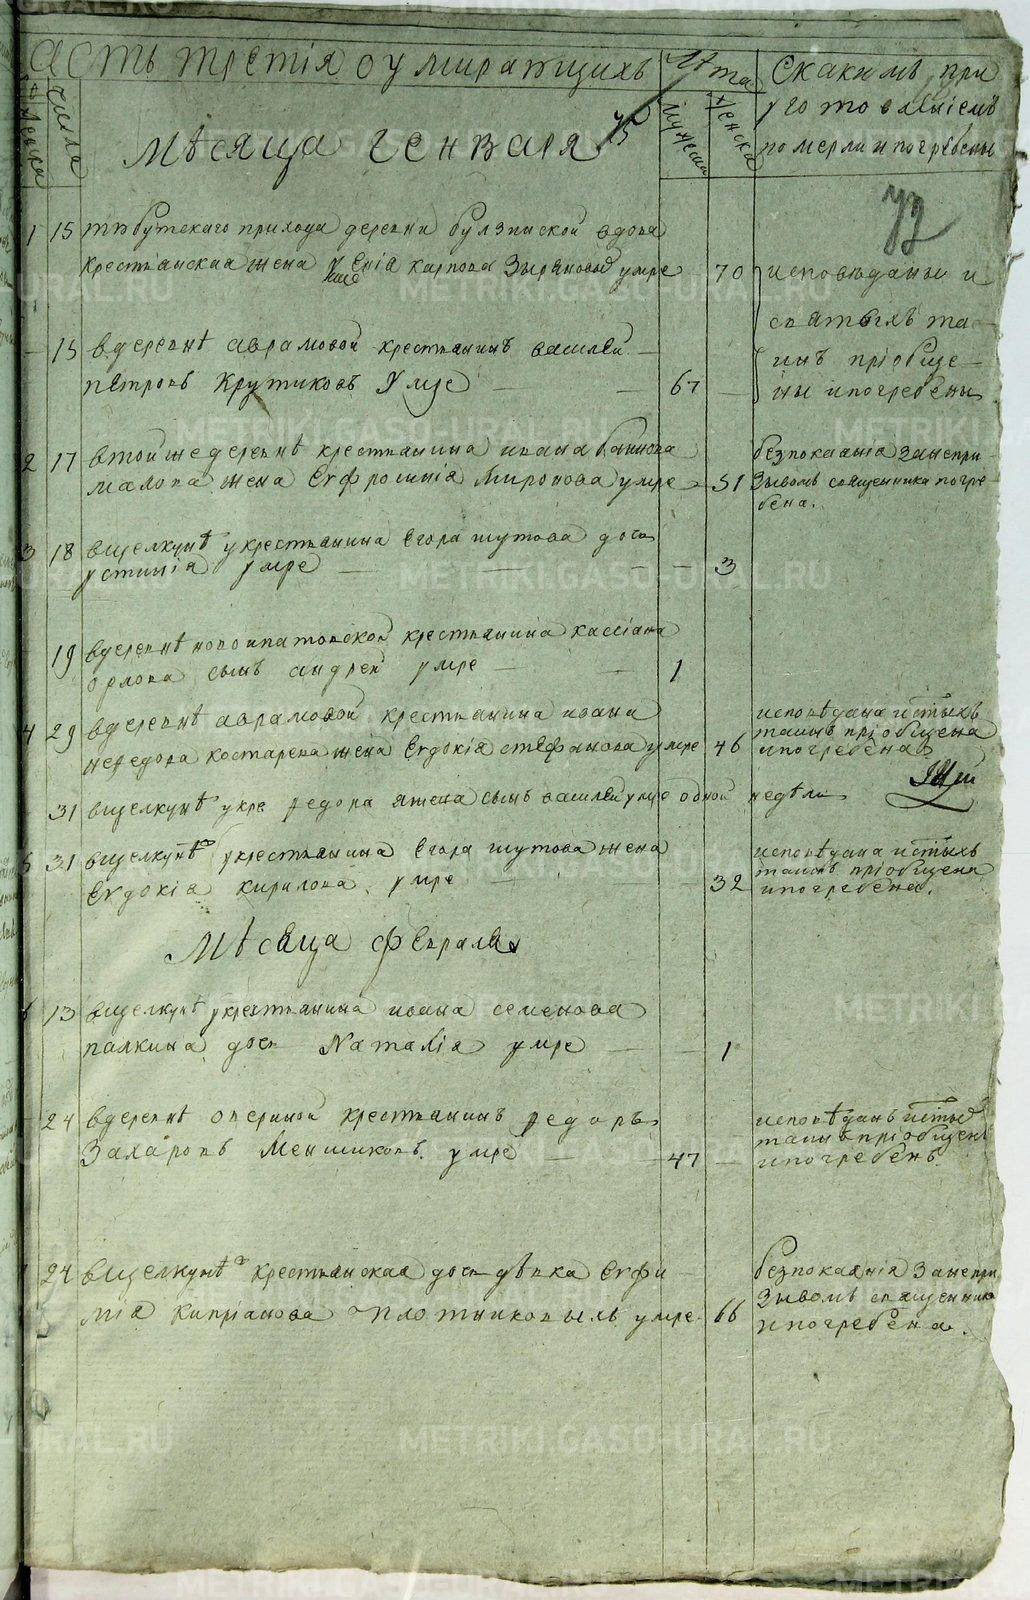 асть третія оумирающихъ
Лѣта
Скакимъ при
женска
числа
мужеска
женска
уготовленіемъ
померли и погребены
Мѣсяца генваря
75
1 15 тюбукскаго прихода деревни булзинской вдова
крестьянская жена Ксенія карпова Зыряновыхъ умре 70 исповѣданы и
святыхъ та
инъ пріобще
ны ипогребены
— 15 вдеревнѣ аврамовой крестьянинъ василей
петровъ Крутиковъ умре — — 67 —
2 17 втойжедеревнѣ крестьянина ивана
жена Евфросинія Миронова умре 51
безпокаянія занепри
зывомъ священника погре
бена.
3 18 вщелкунѣ укрестьянина Егора шутова дочь
устинія умре — — — — 3
19 вдеревнѣ новоипатовской крестьянина кассіана
орлова сынъ андрей умре — — 1
4 29 вдеревнѣ аврамовой крестьянина ивана
костарева жена Евдокія стефанова умре 46
исповѣдана истыхъ
таинъ пріобщена
ипогребена
31 вщелкунѣ укре федора сынъ василей умре одной недѣли
5 31 вщелкунѣ укрестьянина Егора шутова жена
Евдокія кирилова умре — — 32
исповѣдана истыхъ
таинъ пріобщена
ипогребена.
Мѣсяца февраля
6 13 вщелкунѣ укрестьянина ивана семенова
палкина дочь Наталія умре — — 1
24 вдеревнѣ авериной крестьянинъ федоръ
Захаровъ Меншиковъ умре — 47 —
исповѣданъ истыхъ
таинъ пріобщенъ
ипогребенъ.
24 вщелкунѣ крестьянская дочь дѣвка Евфи
мія Кипріанова Плотниковыхъ умре 66
безпокаянія занепри
зывомъ священника
ипогребена.
METRIKI.GASO-URAL.RU